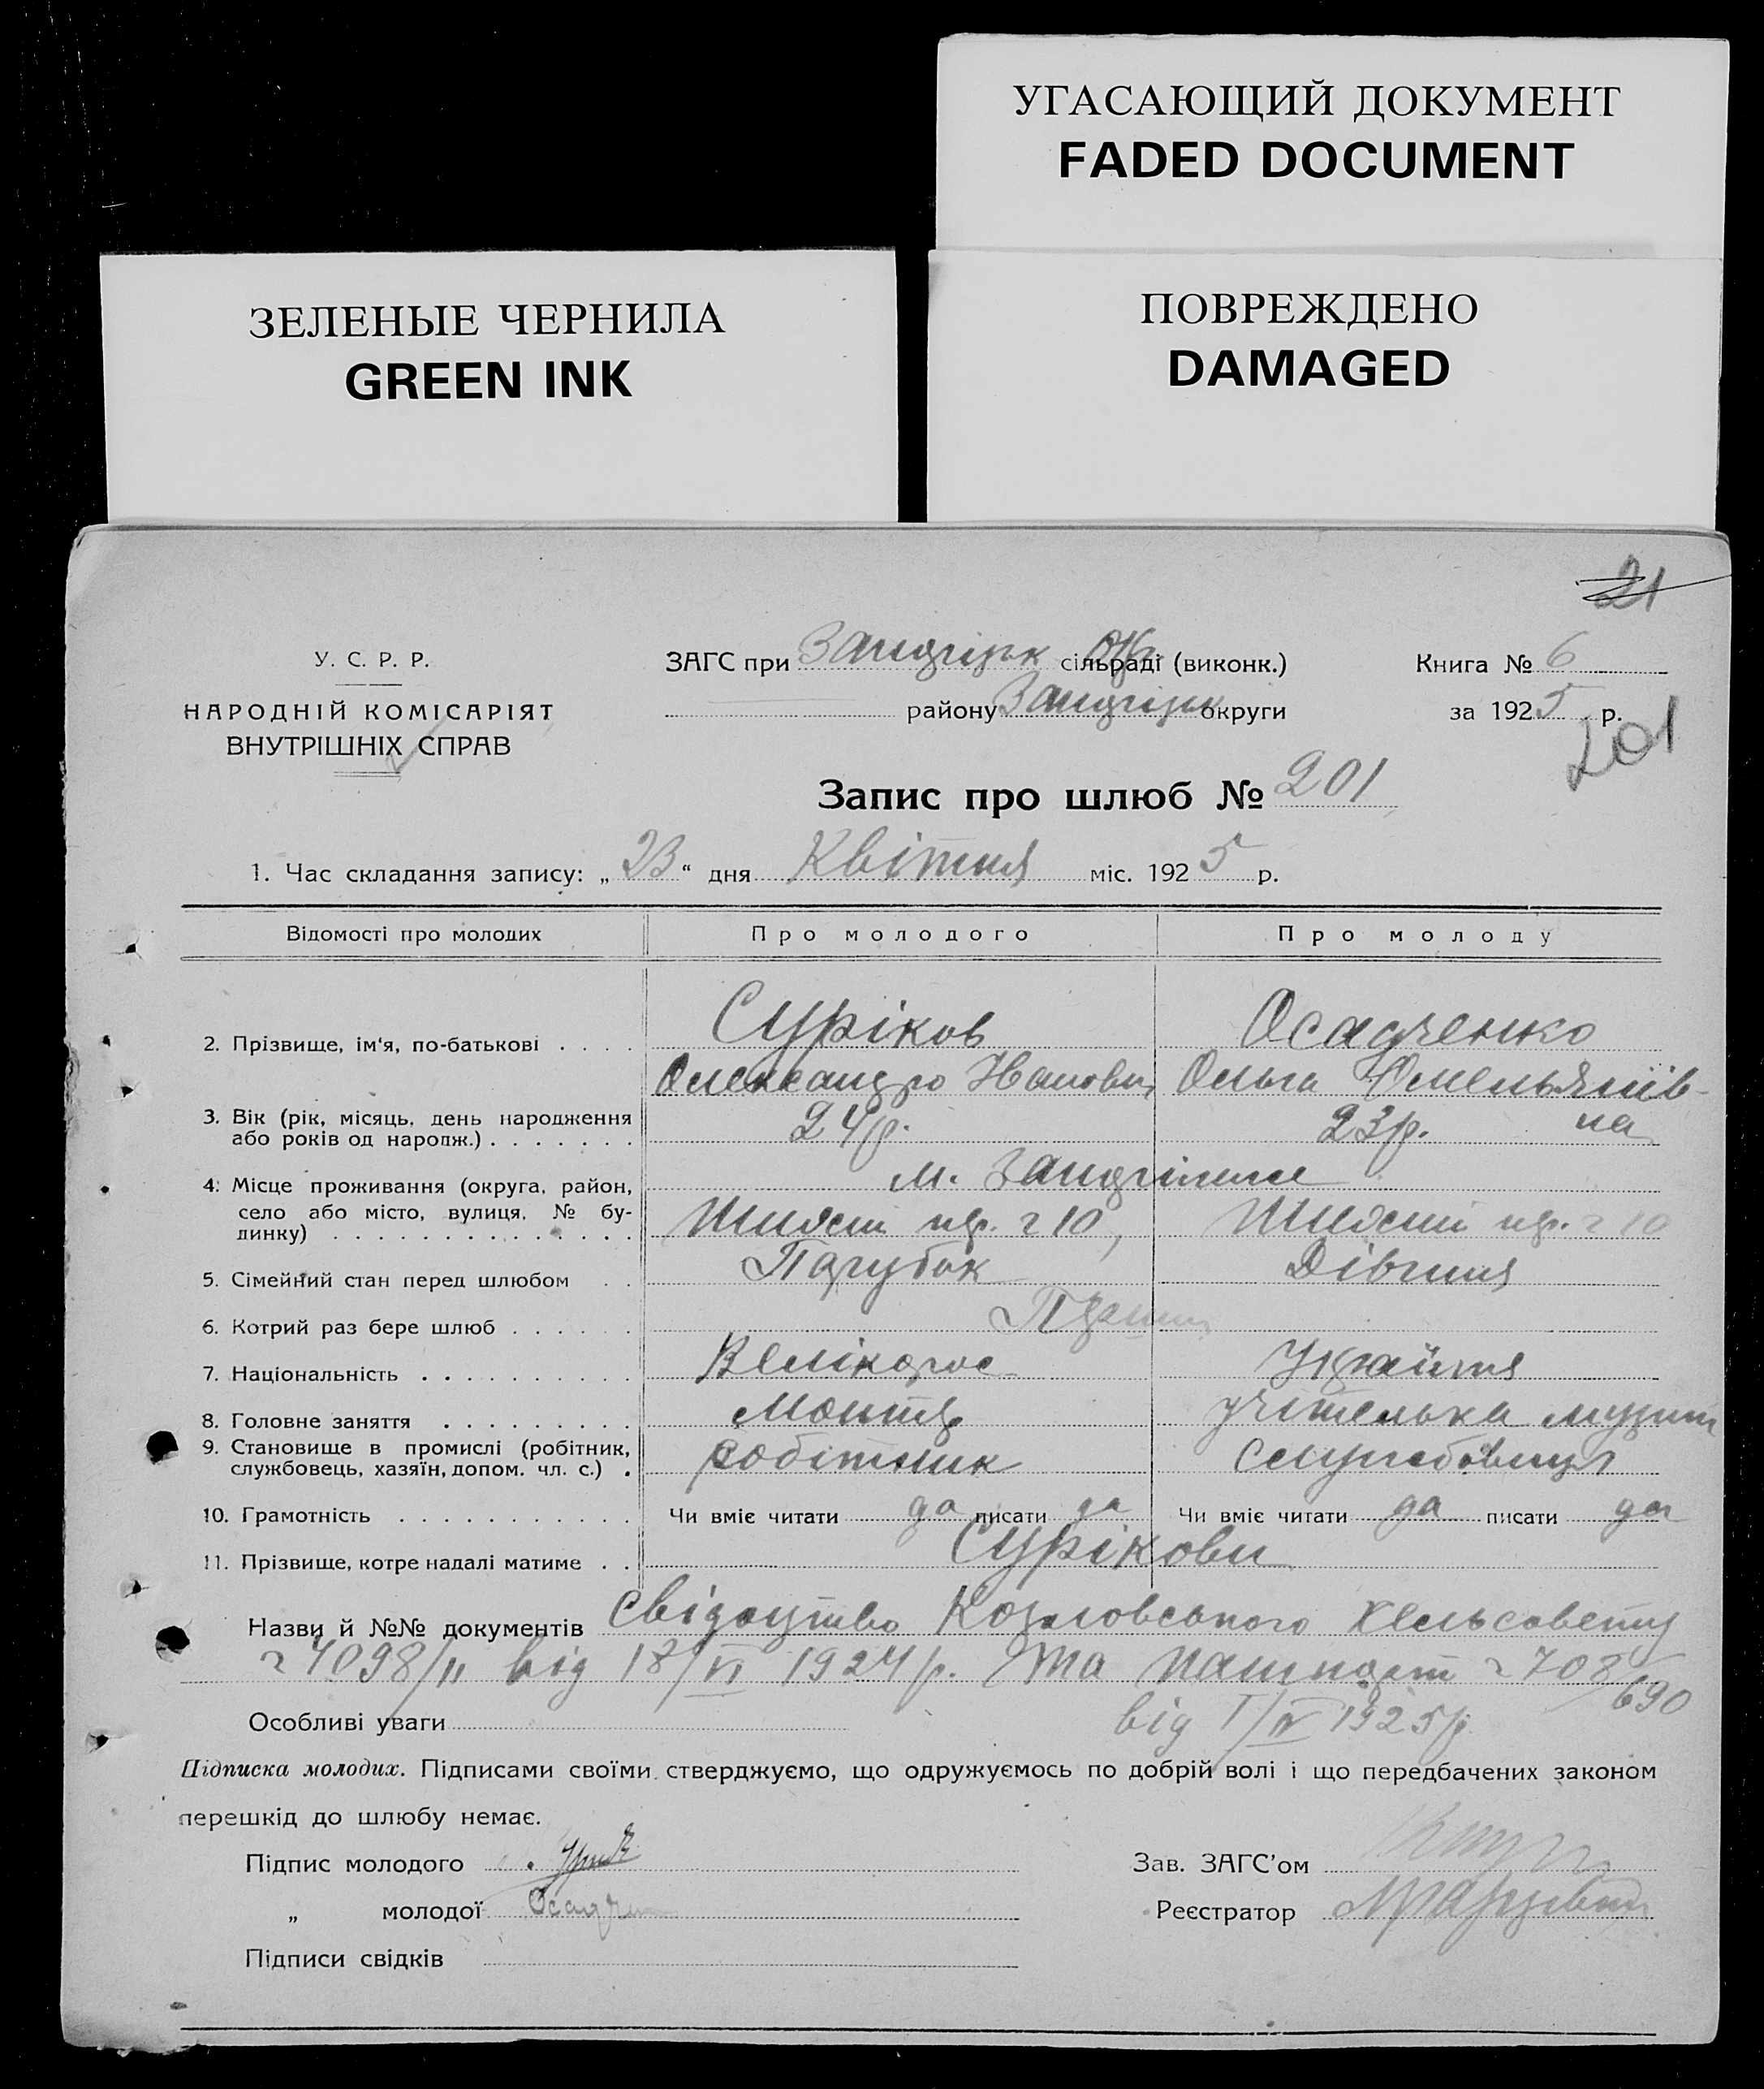 УГАСАЮЩИЙ ДОКУМЕНТ
FADED DOCUMENT
ЗЕЛЕНЫЕ ЧЕРНИЛА
GREEN INK
ПОВРЕЖДЕНО
DAMAGED
21
У. С. Р. Р.
НАРОДНІЙ КОМІСАРІЯТ
ВНУТРІШНІХ СПРАВ
ЗАГС при Запоріжж Окр. сільраді (виконк.)
району Запоріжж округи
Книга № 6
за 1925 р.
201
Запис про шлюб № 201
1. Час складання запису: „23“ дня Квітня міс. 1925 р.
Відомості про молодих Про молодого Про молоду
2. Прізвище, ім'я, по-батькові Суріков Осадченко
Олександро Іванович Ольга Омельянів-
на
3. Вік (рік, місяць, день народження або років од народж.) 24 р. 23 р.
4. Місце проживання (округа, район, село або місто, вулиця, № будинку) м. Запоріжжє
10, 10
5. Сімейний стан перед шлюбом Парубок Дівчина
6. Котрий раз бере шлюб Перший
7. Національність Велікорос Україн.
8. Головне заняття Монтер учітелька музики
9. Становище в промислі (робітник, службовець, хазяїн, допом. чл. с.) робітник служебовиця
10. Грамотність Чи вміє читати да писати да Чи вміє читати да писати да
11. Прізвище, котре надалі матиме Сурікови
Назви й №№ документів Свідоцтво Козловського
4098/11 від 18/VI 1924 р. та пашпорт 708/690
від 1/IV 1925 р.
Особливі уваги
Підписка молодих. Підписами своїми стверджуємо, що одружуємось по добрій волі і що передбачених законом
перешкід до шлюбу немає.
Підпис молодого
„ молодої Осадчен
Підписи свідків
Зав. ЗАГС'ом
Реєстратор